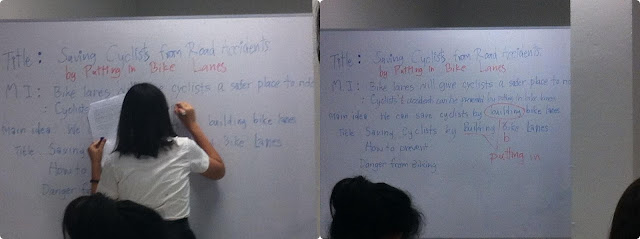 Title: Saving Cyclists from Road Accidents
by Putting in Bike Lanes
M.I: Bike lanes will give cyclists a safer place to ride
: Cyclists
building bike lanes
Main idea: We
Bike Lanes
Title Saving
How to
Danger
Title: Saving Cyclists from Road Accidents
by Putting in Bike Lanes
M.I: Bike lanes will give cyclists a safer place to ride
: Cyclists' accident can be by in bike lanes
Main idea: We can save cyclists by building bike lanes
Title Saving Cyclists by Building Lanes
b
How to prevent
putting in
Danger from Biking